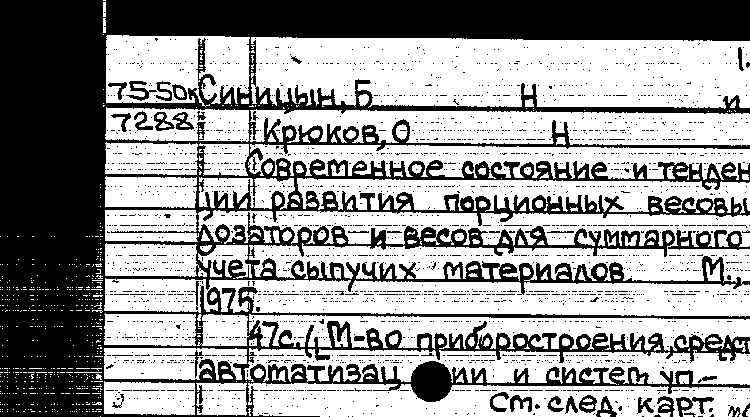 1.
75-50к Синицын, Б Н и
7288 Крюков, О Н
Современное состояние и тенден
ции развития порционных весовы
дозаторов и весов для суммарного
учета сыпучих материалов М.,
1975.
47с. (М-во приборостроения, средст
автоматизац ии и систем уп.-
См. след. карт.